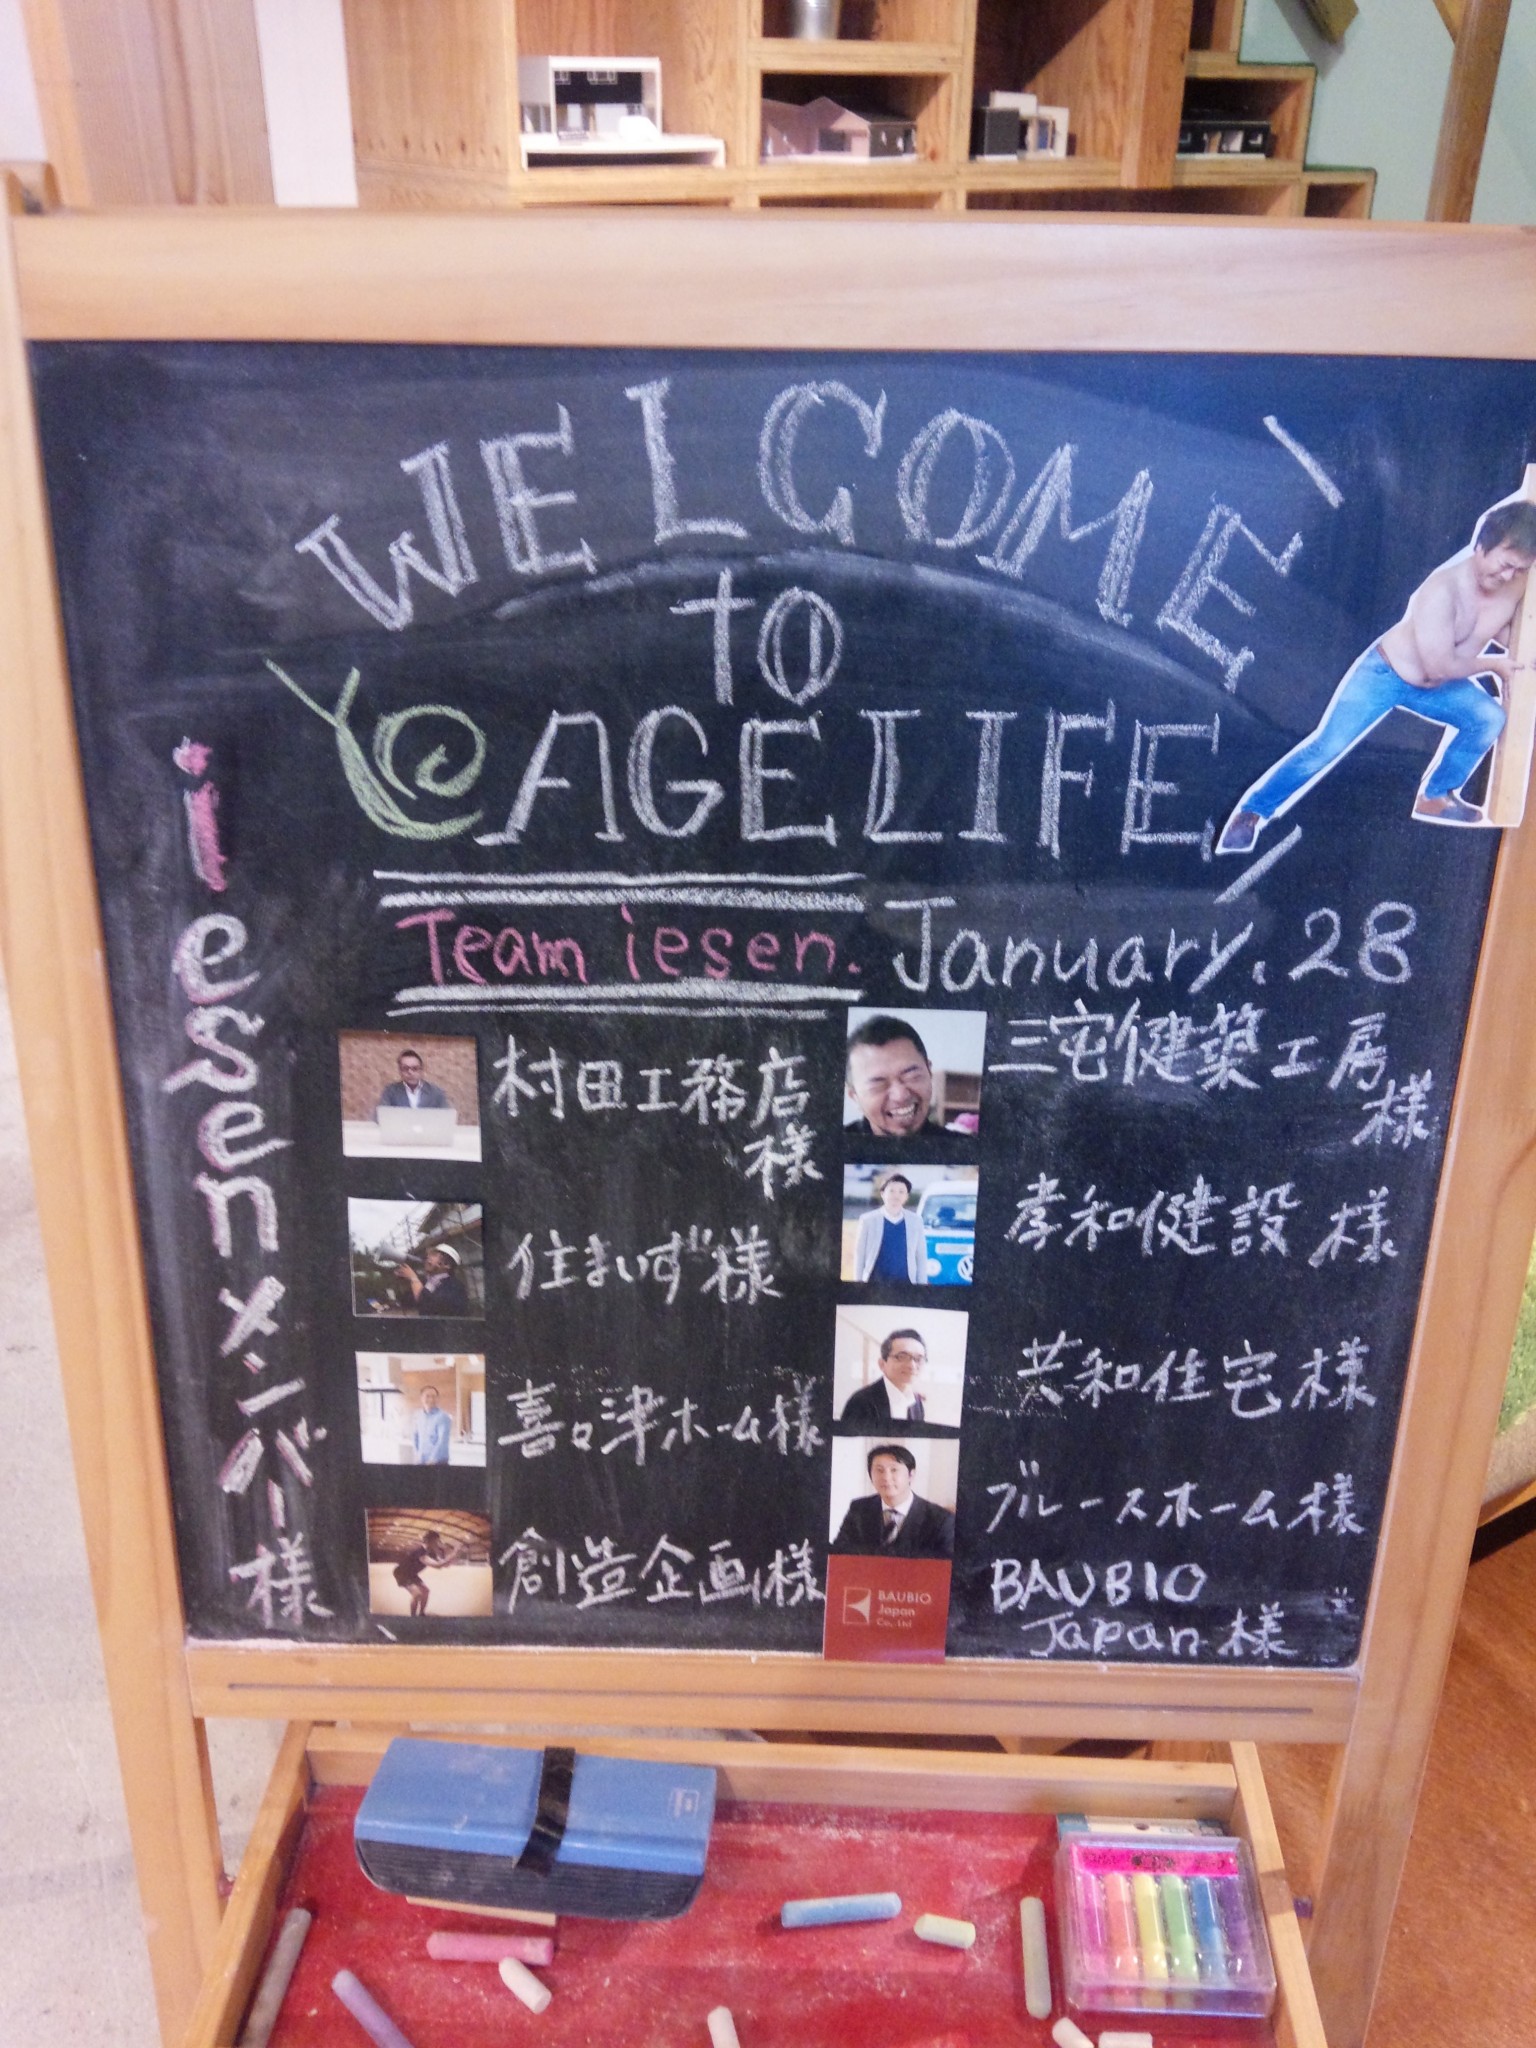 WELCOME
to
AGELIFE
Team iesen. January. 28
iesenメンバー様
村田工務店
様
住まいず様
喜々津ホーム様
創造企画様
三宅健築工房
様
孝和健設様
共和住宅様
ブルースホーム様
BAUBIO
Japan様
BAUBIO
Japan
Co., Ltd